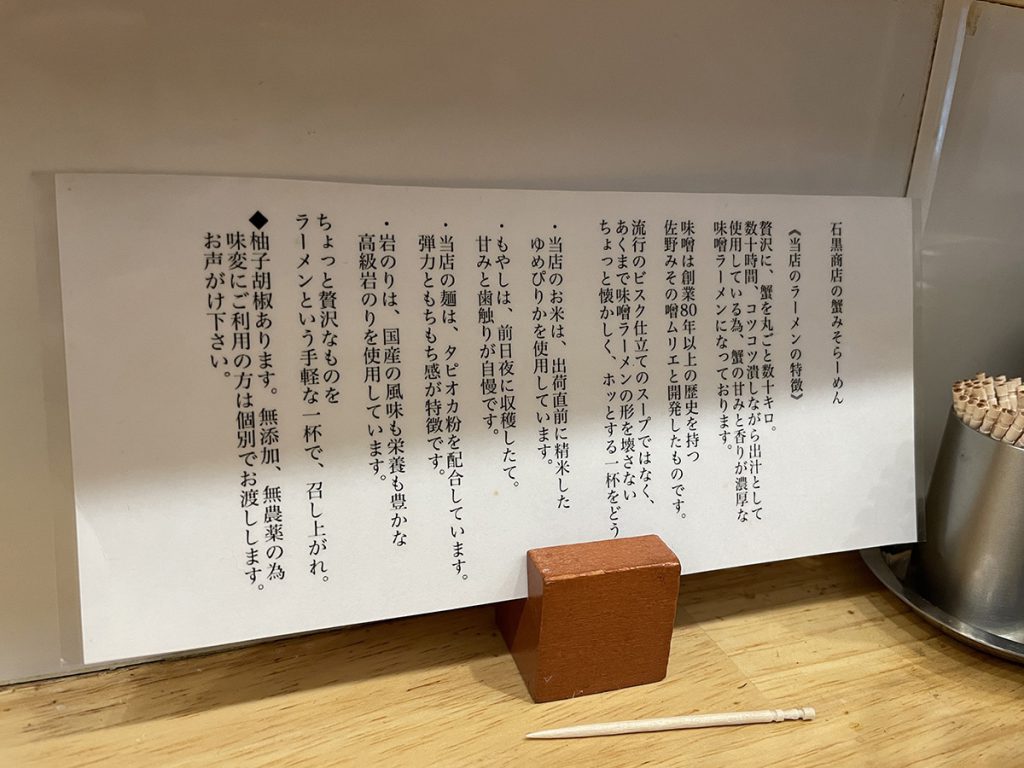 石黒商店の蟹みそらーめん
《当店のラーメンの特徴》
贅沢に、蟹を丸ごと数十キロ。
数十時間、コツコツ潰しながら出汁として
使用している為、蟹の甘みと香りが濃厚な
味噌ラーメンになっております。
味噌は創業80年以上の歴史を持つ
佐野みその噌ムリエと開発したものです。
流行のビスク仕立てのスープではなく、
あくまで味噌ラーメンの形を壊さない
ちょっと懐かしく、ホッとする一杯をどう
・当店のお米は、出荷直前に精米した
ゆめぴりかを使用しています。
・もやしは、前日夜に収穫したて。
甘みと歯触りが自慢です。
・当店の麺は、タピオカ粉を配合しています。
弾力ともちもち感が特徴です。
・岩のりは、国産の風味も栄養も豊かな
高級岩のりを使用しています。
ちょっと贅沢なものを
ラーメンという手軽な一杯で、召し上がれ。
◆柚子胡椒あります。無添加、無農薬の為
味変にご利用の方は個別でお渡しします。
お声がけ下さい。